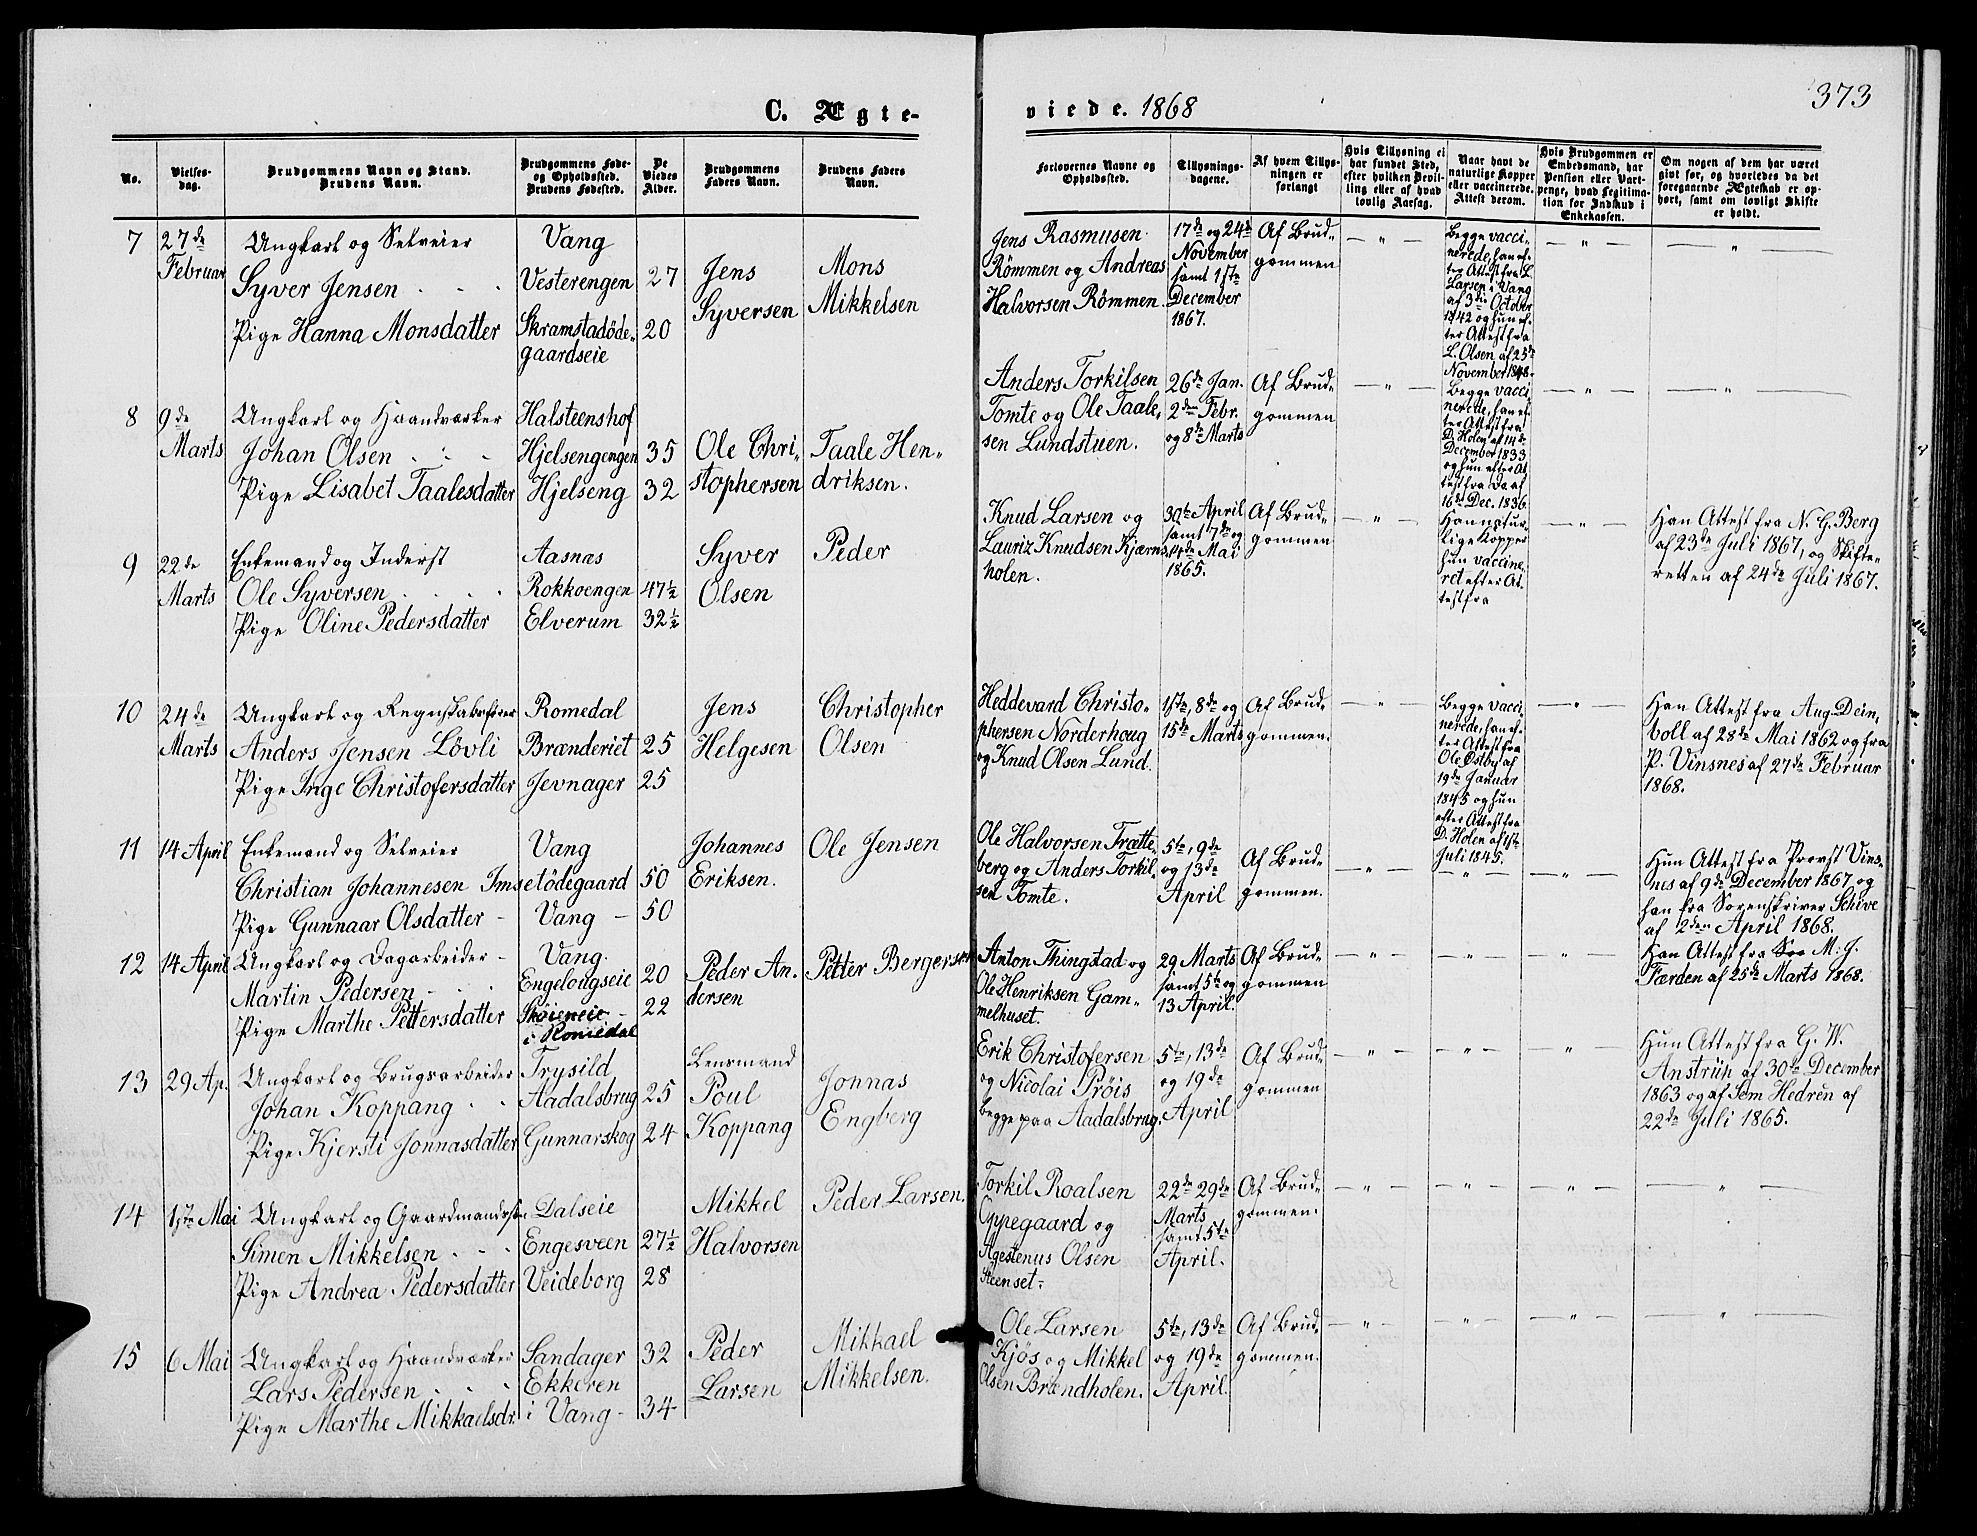 373
C. Ægte-
viede. 1868
No.
Vielses-
dag.
Brudgommens Navn og Stand.
Brudens Navn.
Brudgommens Føde-
og Opholdssted.
Brudens Fødested.
De
Viedes
Alder.
Brudgommens
Faders Navn.
Brudens Faders
Navn.
Forlovernes Navne og
Opholdssted.
Tillysnings-
dagene.
Af hvem Tillys-
ningen er
forlangt
Hvis Tillysning ei
har fundet Sted,
efter hvilken Bevil-
ling eller af hvad
lovlig Aarsag.
Naar havt de
naturlige Kopper
eller vaccinerede.
Attest derom.
Hvis Brudgommen er
Embedsmand, har
Pension eller Vart-
penge, hvad Legitima-
tion for Indskud i
Enkekassen.
Om nogen af dem har været
gift før, og hvorledes da det
foregaaende Ægteskab er op-
hørt, samt om lovligt Skifte
er holdt.
7
27de
Februar
Ungkarl og Selveier
Syver Jensen
Pige Hanna Monsdatter
Vang
Vesterengen
Skramstadøde-
gaardseie
27
20
Jens
Syversen
Mons
Mikkelsen
Jens Rasmusen
Rømmen og Andreas
Halvorsen Rømmen.
17de og 24de
November
samt 1ste
December
1867.
Af Brud-
gommen
Begge vacci-
nerede, han ef-
ter Attest fra L.
Larsen i Vang
af 3die October
1842 og hun ef-
ter Attest fra
L. Olsen af 25de
November 1848.
8
9de
Marts
Ungkarl og Haandværker
Johan Olsen
Pige Lisabet Taalesdatter
Halsteenshof
Hjelsengengen
Hjelseng
35
32
Ole Chri-
stophersen
Taale Hen-
driksen.
Anders Torkilsen
Tomte og Ole Taale-
sen Lundstuen.
26de Jan.
2den Febr.
og 8de Marts
Af Brud-
gommen
Begge vacci
nerede, han ef-
ter Attest fra
D. Holen af 14de
December 1833
og hun efter At
test fra Do af
16de Dec. 1836
9
22de
Marts
Enkemand og Inderst
Ole Syversen
Pige Oline Pedersdatter
Aasnas
Rokkoengen
Elverum
47½
32½
Syver
Olsen
Peder
Knud Larsen og
Lauriz Knudsen Kjærns-
holen.
30te April
samt 7de og
14de Mai
1865.
Af Brud-
gommen
Han natur-
lige Kopper
hun vaccine-
ret efter At-
test fra
Han Attest fra N. G. Berg
af 23de Juli 1867, og Skifte-
retten af 24de Juli 1867.
10
24de
Marts
Ungkarl og Regnskabsfører
Anders Jensen Løvli
Pige Inge Christofersdatter
Romedal
Brænderiet
Jevnager
25
25
Jens
Helgesen
Christopher
Olsen
Heddevard Christo-
phersen Norderhoug
og Knud Olsen Lund.
1ste, 8de og
15de Marts
Af Brud-
gommen.
Begge vacci
nerede, han ef-
ter Attest fra
Ole Østby af
19de Januar
1845 og hun
efter Attest fra
D. Holen af 1ste
Juli 1845.
Han Attest fra Aug. Dein-
boll af 28de Mai 1862 og fra
P. Vinsnes af 27de Februar
1868.
11
14 April
Enkemand og Selveier
Christian Johannesen Imsetødegaard
Pige Gunnaar Olsdatter
Vang
Vang
50
50
Johannes
Eriksen.
Ole Jensen
Ole Halvorsen Frætte-
berg og Anders Torkil-
sen Tomte.
5te, 9de
og 13de
April
Af Brud-
gommen.
Hun Attest fra Provst Vins-
nes af 9de December 1867 og
han fra Sorenskriver Schive
af 2den April 1868.
12
14 April
Ungkarl og Dagarbeider
Martin Pedersen
Pige Marthe Pettersdatter
Vang.
Engelougseie
Skøieneie
i Romedal
20
22
Peder An-
dersen
Petter Bergersen
Anton Thingstad og
Ole Henriksen Gam-
melhuset.
29 Marts
samt 5te og
13 April.
Af Brud-
gommen
Han Attest fra M. J.
Færden af 25de Marts 1868.
13
29 Ap.
Ungkarl og Brugsarbeider
Johan Koppang
Pige Kjersti Jonnasdatter
Trysild
Aadalsbrug
Gunnarskog
25
24
Lensmand
Poul
Koppang
Jonnas
Engberg
Erik Christofersen
og Nicolai Prøis
begge paa Aadalsbrug.
5te, 13de
og 19de
April
Af Brud-
gommen
Hun Attest fra G. W.
Anstrüp af 30te December
1863 og af Sem Hedrén af
22de Juli 1865.
14
1ste Mai
Ungkarl og Gaardmandssøn
Simen Mikkelsen
Pige Andrea Pedersdatter
Dalseie
Engesveen
Veideborg
27½
28
Mikkel
Halvorsen
Peder Larsen.
Torkil Roalsen
Oppegaard og
Agestenus Olsen
Steenset.
22de 29de
Marts
samt 5te
April.
Af Brud-
gommen.
15
6 Mai
Ungkarl og Haandværker
Lars Pedersen
Pige Marthe Mikkaelsdr.
Sandager
Ekkeren
i Vang
32
34
Peder
Larsen
Mikkael
Mikkelsen.
Ole Larsen
Kjøs og Mikkel
Olsen Brændholen.
5te, 13de
og 19de
April.
Af Brud-
gommen.